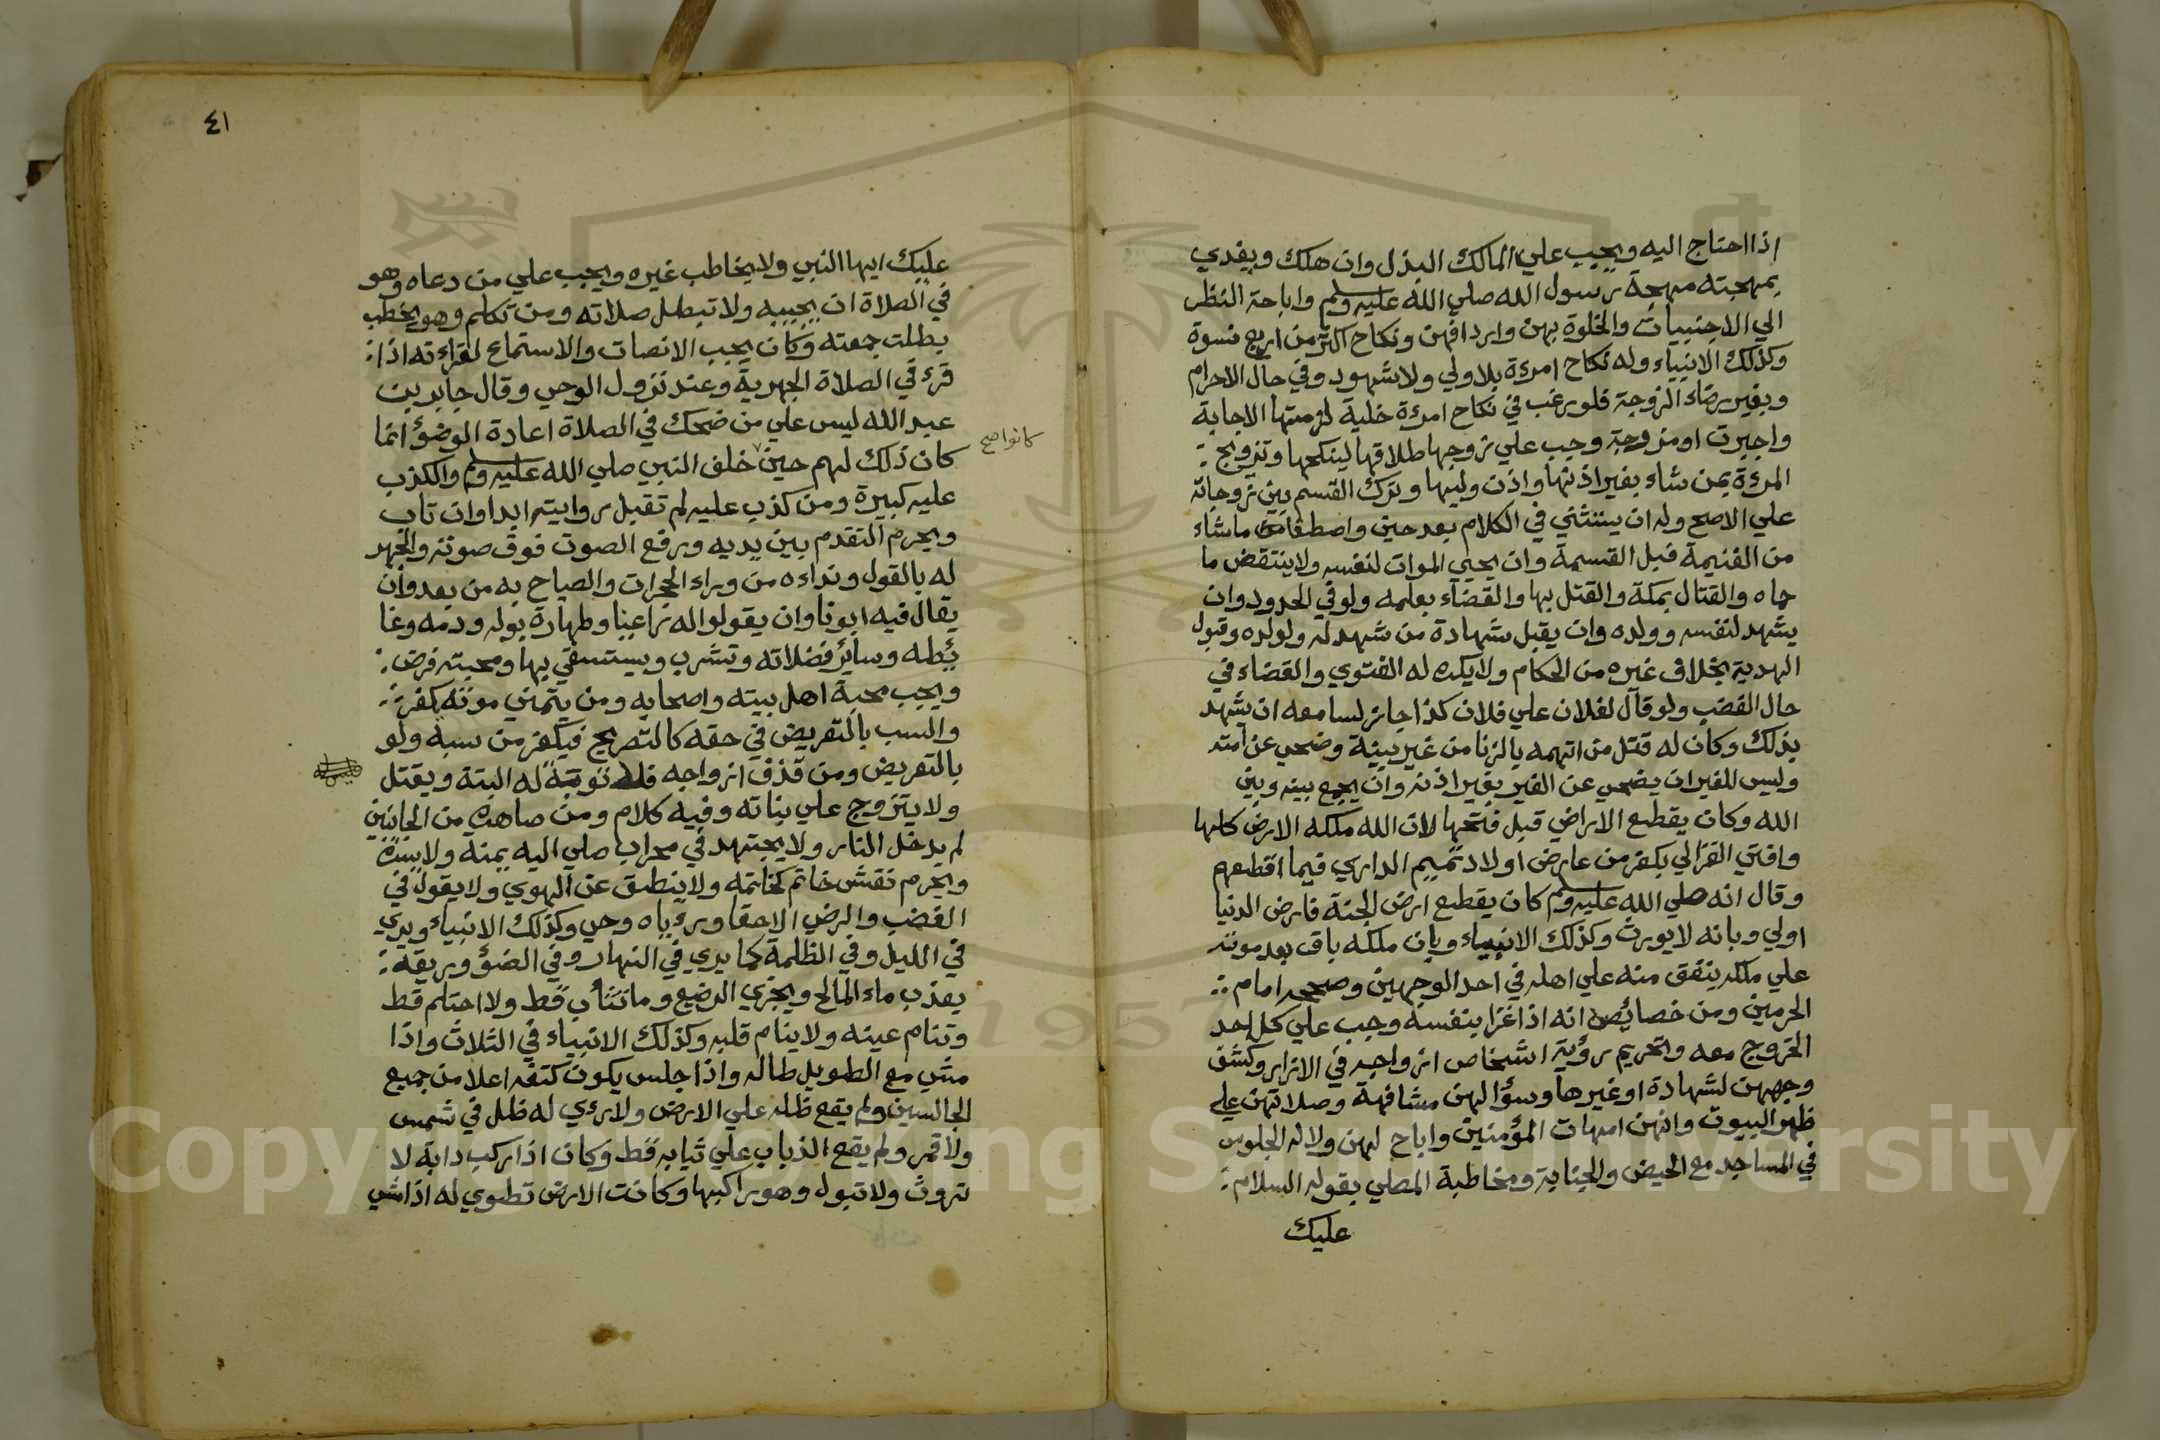 اذا احتاج اليه ويجب علي المالك البذل وان هلك ويفدي
بمهجته مهجة رسول الله صلي الله عليه وسلم واباحة النظر
الي الاجنبيات والخلوة بهن واردافهن ونكاح اكثر من اربع نسوة
وكذلك الانبياء وله نكاح امرءة بلا ولي ولا شهود وفي حال الاحرام
وبغير رضاء الزوجة فلو رغب في نكاح امرءة خلية لزمتها الاجابة
واجبرت او مزوجة وجب علي زوجها طلاقها لينكحها وتزويج
المرءة بمن شاء بغير اذنها واذن وليها وترك القسم بين زوجاته
علي الاصح وله ان يستثني في الكلام بعد حين واصطفا ماشاء
من الغنيمة قبل القسمة وان يحيي الموات لنفسه ولا ينتقض ما
حماه والقتال بمكة والقتل بها والقضاء بعلمه ولو في الحدود وان
يشهد لنفسه وولده وان يقبل شهادة من شهد له ولولده وقبول
الهدية بخلاف غيره من الحكام ولا يكره له الفتوي والقضاء في
حال الغضب ولو قال لفلان علي فلان كذا جاز لسامعه ان يشهد
بذلك وكان له قتل من اتهمه بالزنا من غير بينة وضحي عن امته
وليس للغير ان يضحي عن الغير بغير اذنه وان يجمع بينه وبين
الله وكان يقطع الاراضي قبل فتحها لان الله ملكه الارض كلها
وافتي الغزالي بكفر من عارض اولاد تميم الداري فيما اقطعهم
وقال انه صلي الله عليه وسلم كان يقطع ارض الجنة فارض الدنيا
اولي وبانه لا يورث وكذلك الانبياء وبان ملكه باق بعد موته
علي ملكه ينفق منه علي اهله في احد الوجهين وصححه امام
الحرمين ومن خصائص انه اذا غزا بنفسه وجب علي كل احد
الخروج معه وتحريم رؤية اشخاص ازواجه في الازار وكشف
وجههن لشهادة او غيرها وسؤالهن مشافهة وصلاتهن علي
ظهر البيوت وانهن امهات المؤمنين واباح لهن ولاله الجلوس
في المساجد مع الحيض والجنابة ومخاطبة المصلي بقوله السلام
عليك
٤١
عليك ايها النبي ولا يخاطب غيره ويجب علي من دعاه وهو
في الصلاة ان يجيبه ولا تبطل صلاته ومن تكلم وهو يخطب
بطلت جمعته وكان يجب الانصات والاستماع لقراءته اذا
قرء في الصلاة الجهرية وعند نزول الوحي وقال جابر بن
عبد الله ليس علي من ضحك في الصلاة اعادة الوضؤ انما
كان ذلك لهم حين خلف النبي صلي الله عليه وسلم والكذب
كانوا صح
عليه كبيرة ومن كذب عليه لم تقبل روايته ابدا وان تاب
ويحرم التقدم بين يديه ورفع الصوت فوق صوته والجهر
له بالقول ونداءه من وراء الحجرات والصياح به من بعد وان
يقال فيه ابونا وان يقولوا له راعنا وطهارة بوله ودمه وغا
ئطه وسائر فضلاته وتشرب ويستشفي بها ومحبته فرض
ويجب محبة اهل بيته واصحابه ومن يتمني موته كفر
والسب بالتعريض في حقه كالتصريح فيكفر من سبه ولو
بالتعريض ومن قذف ازواجه فلا توبة له البتة ويقتل
ولا يتزوج علي بناته وفيه كلام ومن صاهره من الجانبين
لم يدخل النار ولا يجتهد في محراب صلي اليه يمنة ولا يسرة
ويحرم نقش خاتم كخاتمه ولا ينطق عن الهوي ولا يقول في
الغضب والرضي الا حقا ورؤياه وحي وكذلك الانبياء ويري
في الليل وفي الظلمة كما يري في النهار وفي الضوء وريقه
يعذب ماء المالح ويجزي الرضيع وما تثأب قط ولا احتلم قط
وتنام عينه ولا ينام قلبه وكذلك الانبياء في الثلاث واذا
مشي مع الطويل طاله واذا جلس يكون كتفه اعلا من جميع
الجالسين ولم يقع ظله علي الارض ولا رءي له ظل في شمس
ولا قمر ولم يقع الذباب علي ثيابه قط وكان اذا ركب دابة لا
تروث ولا تبول وهو راكبها وكانت الارض تطوي له اذا مشي
1957
Copyright © King Saud University